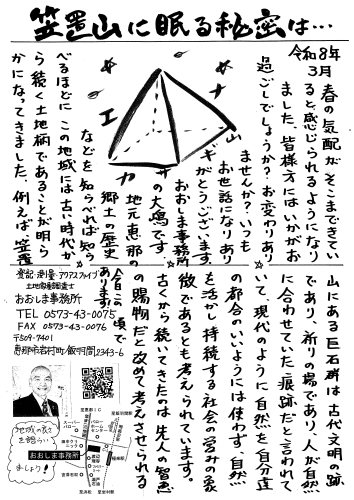 笠置山に眠る秘密は…
令和8年
3月
春の気配がそこまできてい
ると感じられるようになり
ました。皆様方にはいかがお
過ごしでしょうか?お変わりあり
ませんか?いつも
お世話になりあり
がとうございます。
おおしま事務所
の大嶋です。
地元恵那の
郷土の歴史
などを知らべれば知ら
べるほどに この地域には古い時代か
ら続く土地柄であることが明ら
かになってきました。例えば、笠置
エ
ナ
カ
サ
ギ
山
山にある巨石群は古代文明の跡
であり、祈りの場であり、人が自然
に合わせていた痕跡だと言われて
いて、現代のように自然を自分達
の都合のいいようには使わず自然
を活かし持続する社会の営みの象
徴であるとも考えられています。
古くから続いてきたのは先人の智恵
の賜物だと改めて考えさせられる
今日この頃で
あります!
登記・測量・アクアスファイブ
土地家屋調査士
おおしま事務所
TEL 0573-43-0075
FAX 0573-43-0076
〒509-7401
恵那市岩村町飯羽間2343-6
地域の家を
を語らい
ましょう!
おおしま事務所